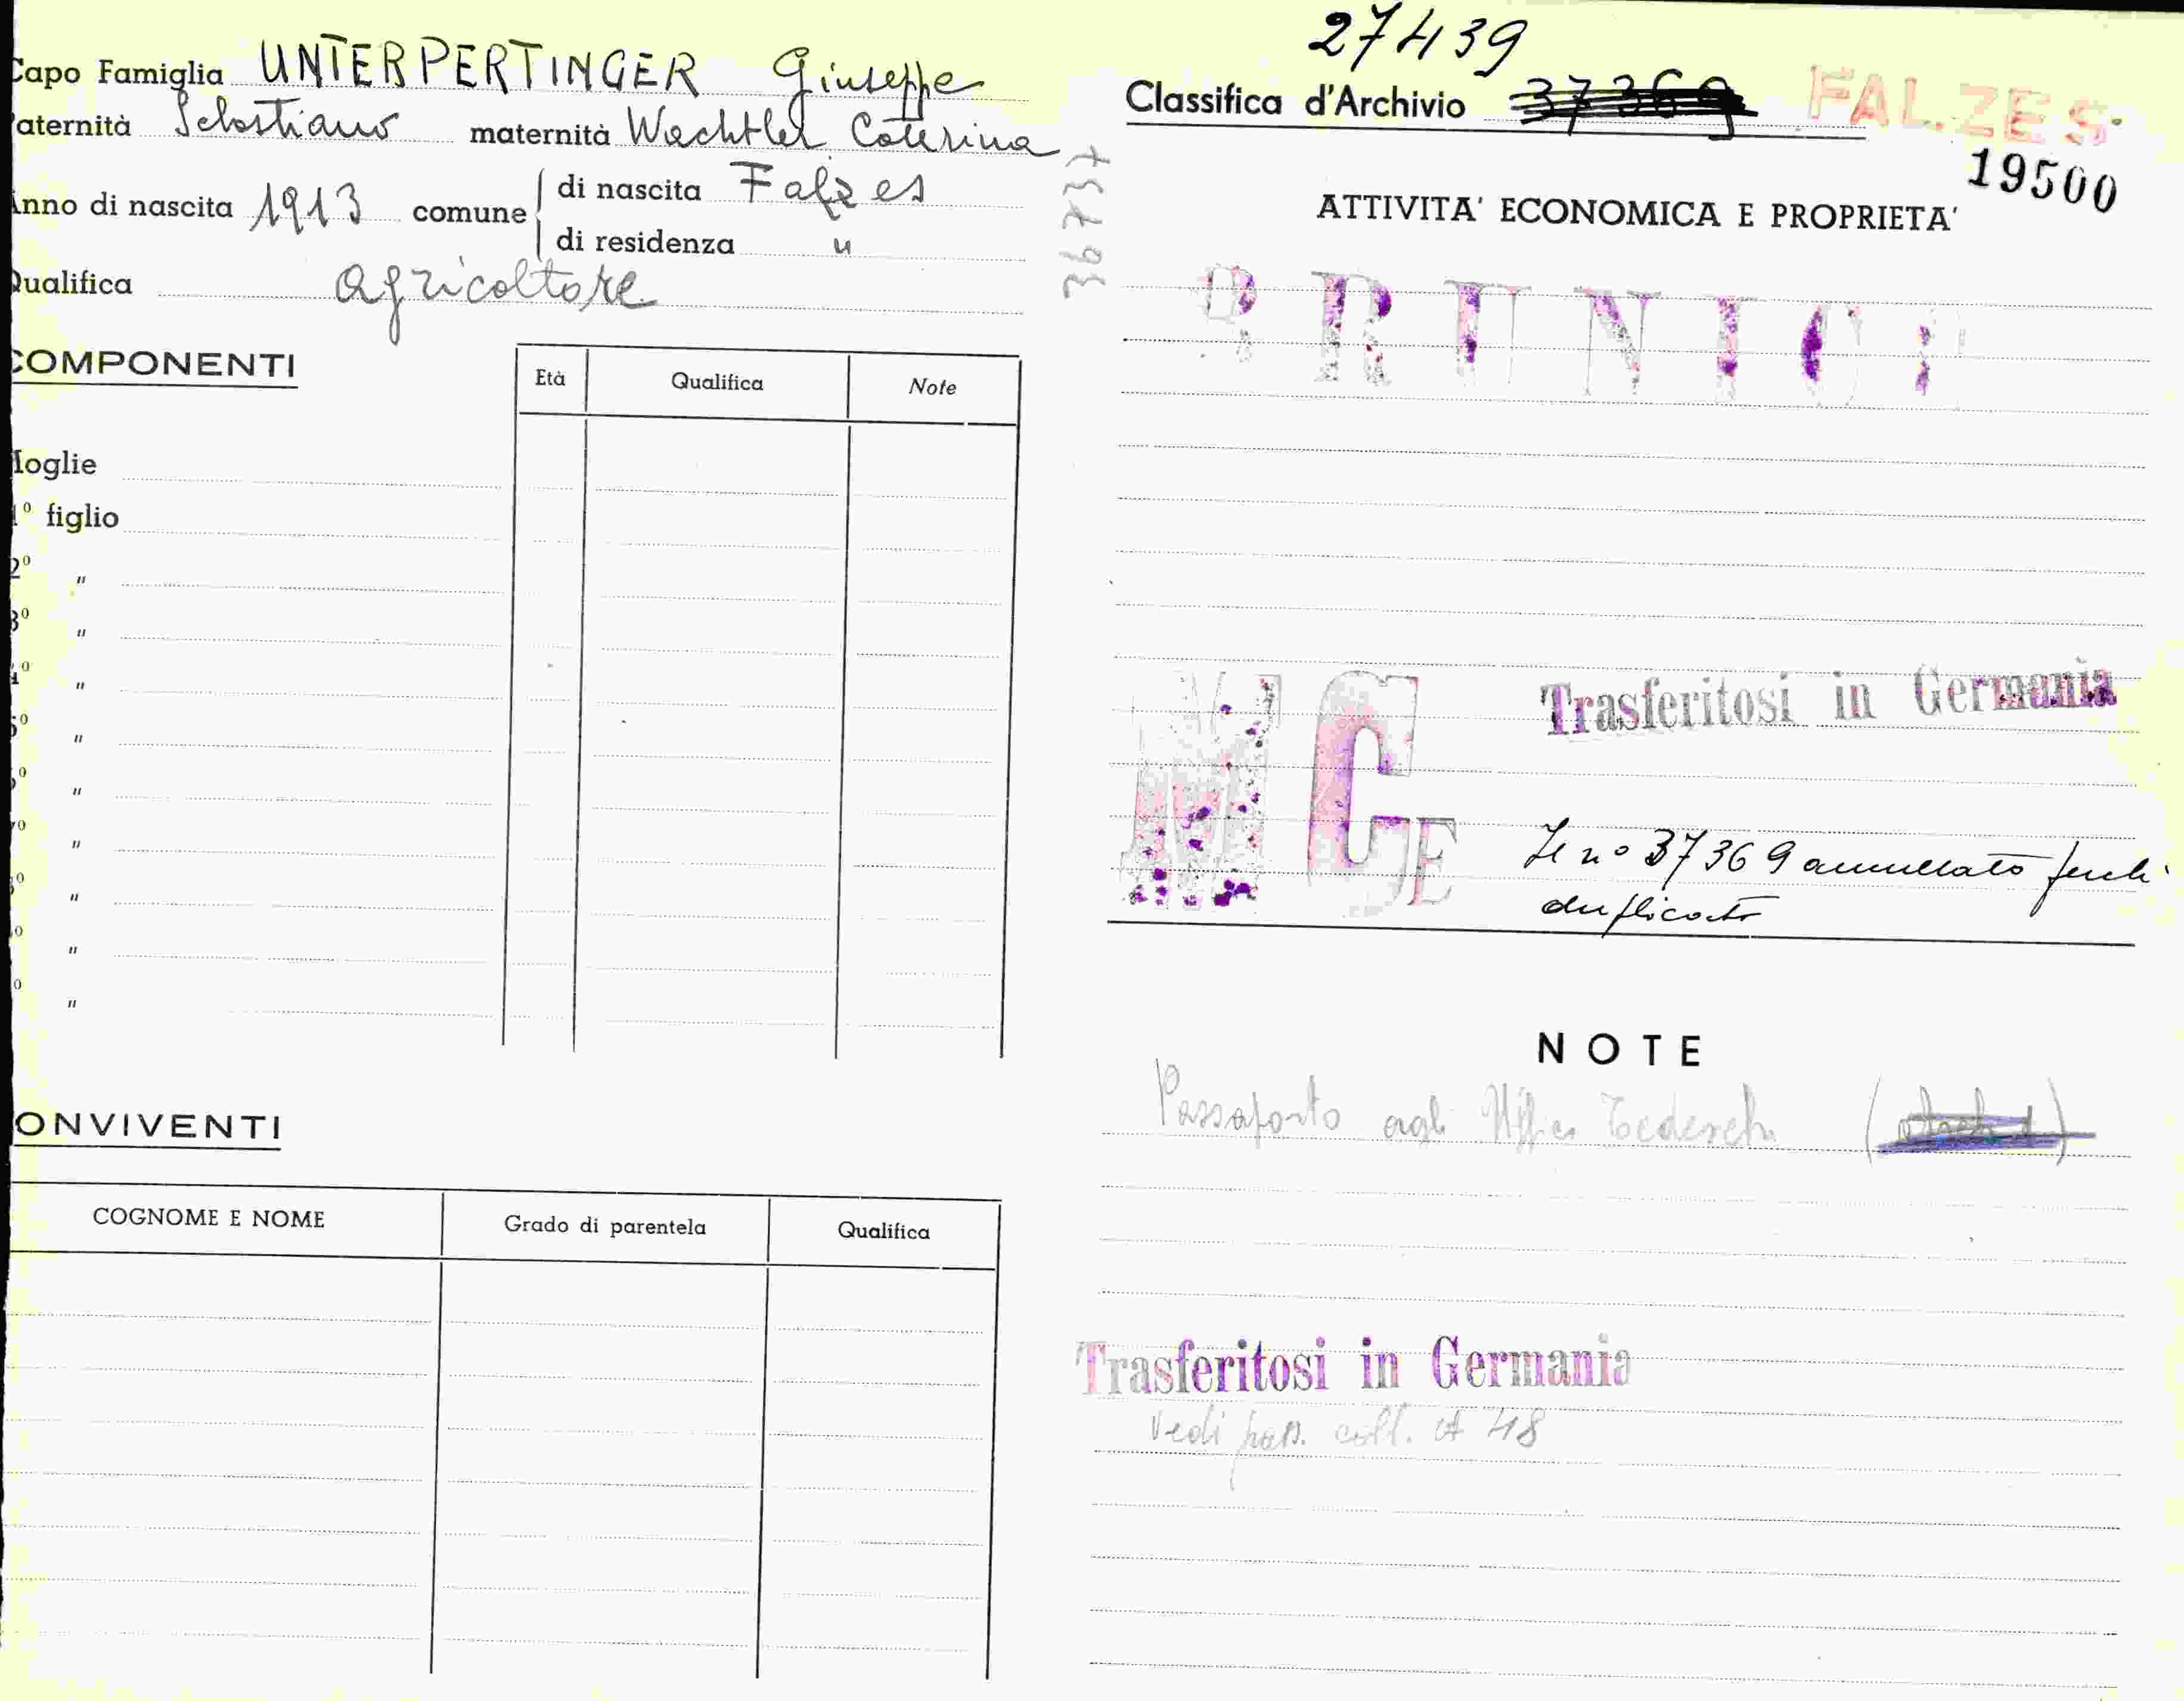 Capo Famiglia UNTERPERTINGER Giuseppe
Paternità Sebastiano maternità Wachtler Caterina
Anno di nascita 1913 comune di nascita Falzes
di residenza "
Qualifica agricoltore
COMPONENTI
Età Qualifica Note
Moglie
1º figlio
2º "
3º "
4º "
5º "
6º "
7º "
8º "
9º "
10º "
CONVIVENTI
COGNOME E NOME Grado di parentela Qualifica
27439
Classifica d'Archivio 37369 FALZES
19500
ATTIVITA' ECONOMICA E PROPRIETA'
BRUNICO
Trasferitosi in Germania
MCE
Il nº 37369 annullato perchè
duplicato
NOTE
Passaporto agli Uffici Tedeschi
Trasferitosi in Germania
Vedi pass. coll. A 48